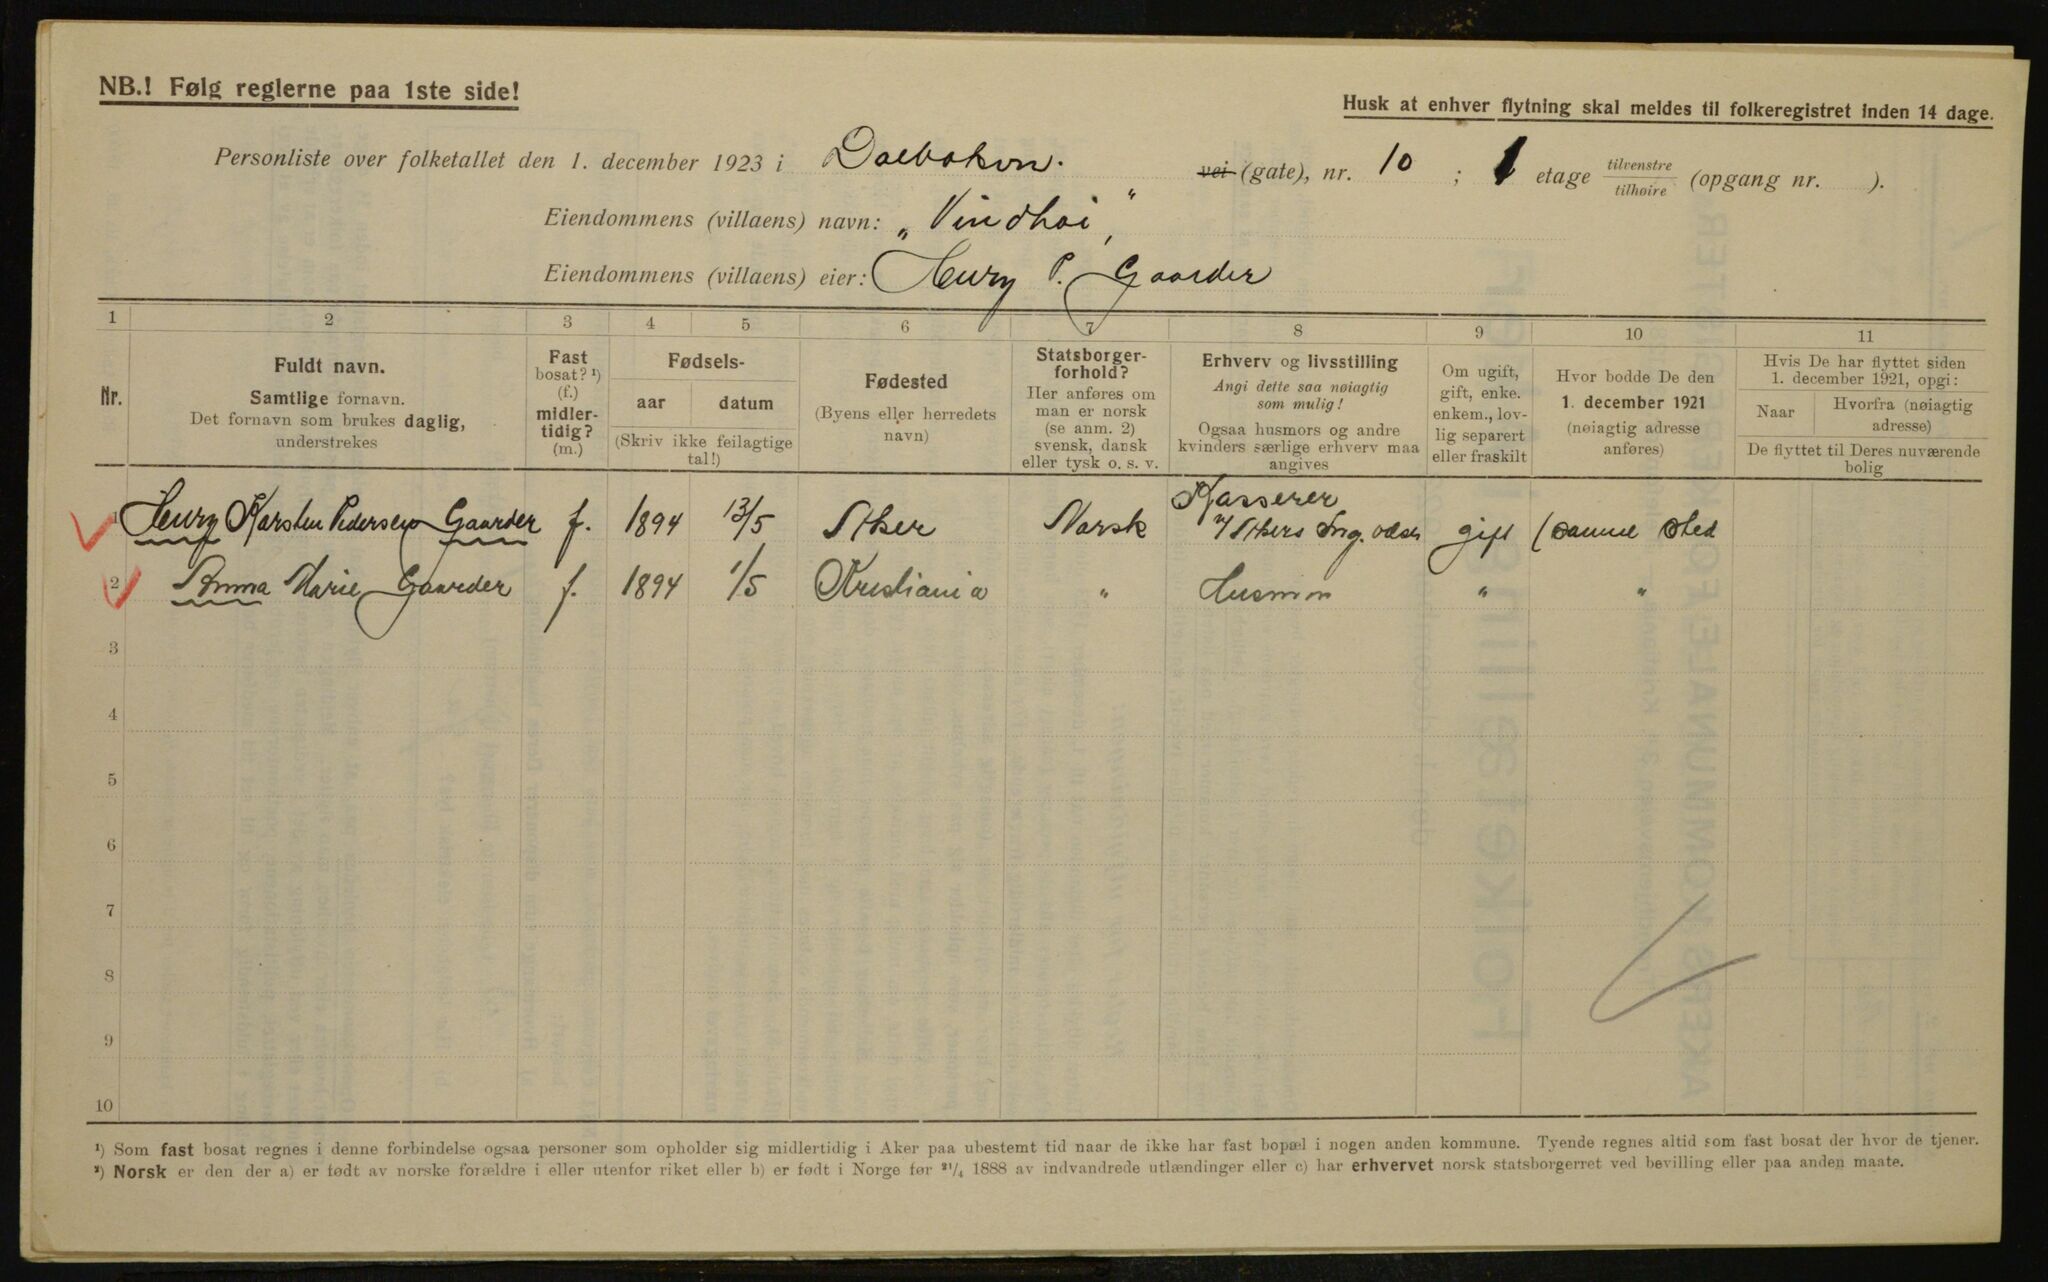 NB.! Følg reglerne paa 1ste side!
Husk at enhver flytning skal meldes til folkeregistret inden 14 dage.
Personliste over folketallet den 1. december 1923 i vei (gate), nr. 10 ; 1 etage tilvenstre tilhøire (opgang nr. ).
Eiendommens (villaens) navn: „Vindhøi"
Eiendommens (villaens) eier: Henry P. Gaarder
1 2 3 4 5 6 7 8 9 10 11
Nr.
Fuldt navn.
Samtlige fornavn.
Det fornavn som brukes daglig,
understrekes
Fast
bosat? ¹)
(f.)
midler-
tidig?
(m.)
Fødsels-
aar datum
(Skriv ikke feilagtige
tal!)
Fødested
(Byens eller herredets
navn)
Statsborger-
forhold?
Her anføres om
man er norsk
(se anm. 2)
svensk, dansk
eller tysk o. s. v.
Erhverv og livsstilling
Angi dette saa nøiagtig
som mulig!
Ogsaa husmors og andre
kvinders særlige erhverv maa
angives
Om ugift,
gift, enke.
enkem., lov-
lig separert
eller fraskilt
Hvor bodde De den
1. december 1921
(nøiagtig adresse
anføres)
Hvis De har flyttet siden
1. december 1921, opgi:
Naar
Hvorfra (nøiagtig
adresse)
De flyttet til Deres nuværende
bolig
Kasserer
1 Henry Karsten Pedersen Gaarder f. 1894 13/5 Aker Norsk v/ Akers gift samme sted
2 Anna Marie Gaarder f. 1894 1/5 Kristiania " Husmor " "
3
4
5
6
7
8
9
10
¹) Som fast bosat regnes i denne forbindelse ogsaa personer som opholder sig midlertidig i Aker paa ubestemt tid naar de ikke har fast bopæl i nogen anden kommune. Tyende regnes altid som fast bosat der hvor de tjener.
²) Norsk er den der a) er født av norske forældre i eller utenfor riket eller b) er født i Norge før ²¹/₄ 1888 av indvandrede utlændinger eller c) har erhvervet norsk statsborgerret ved bevilling eller paa anden maate.